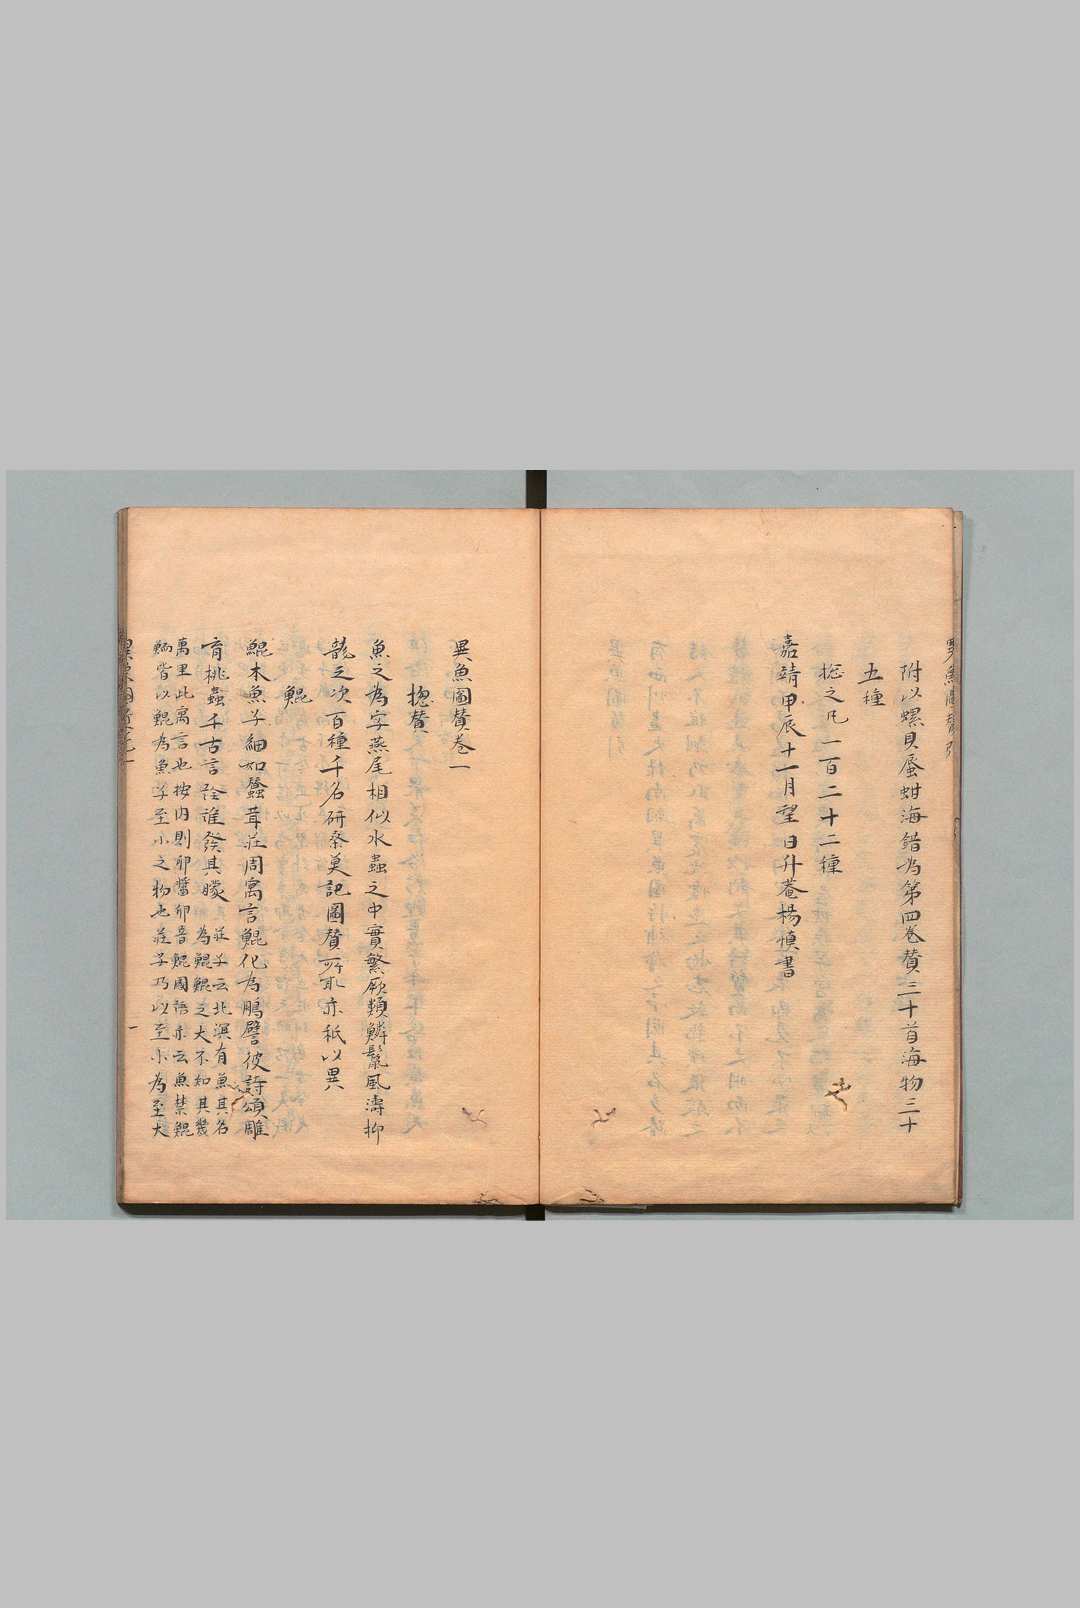 附以螺貝蜃蚶海錯為第四卷贊三十首海物三十
五種
捴之凡一百二十二種
嘉靖甲辰十一月望日升菴楊慎書
異魚圖贊卷一
捴贊
魚之為字燕尾相似水蟲之中實繁厥類鱗鬣風濤抑
龍之次百種千名研桑莫記圖贊所取亦秖以異
鯤
鯤本魚子細如蠶茸莊周寓言鯤化為鵬譬彼詩頌雕
育桃蟲千古言詮誰發其矇
莊子云北溟有魚其名
為鯤鯤之大不知其幾
萬里此寓言也按內則卵醬卵音鯤國語亦云魚禁鯤
鮞皆以鯤為魚子至小之物也莊子乃以至小為至大
一